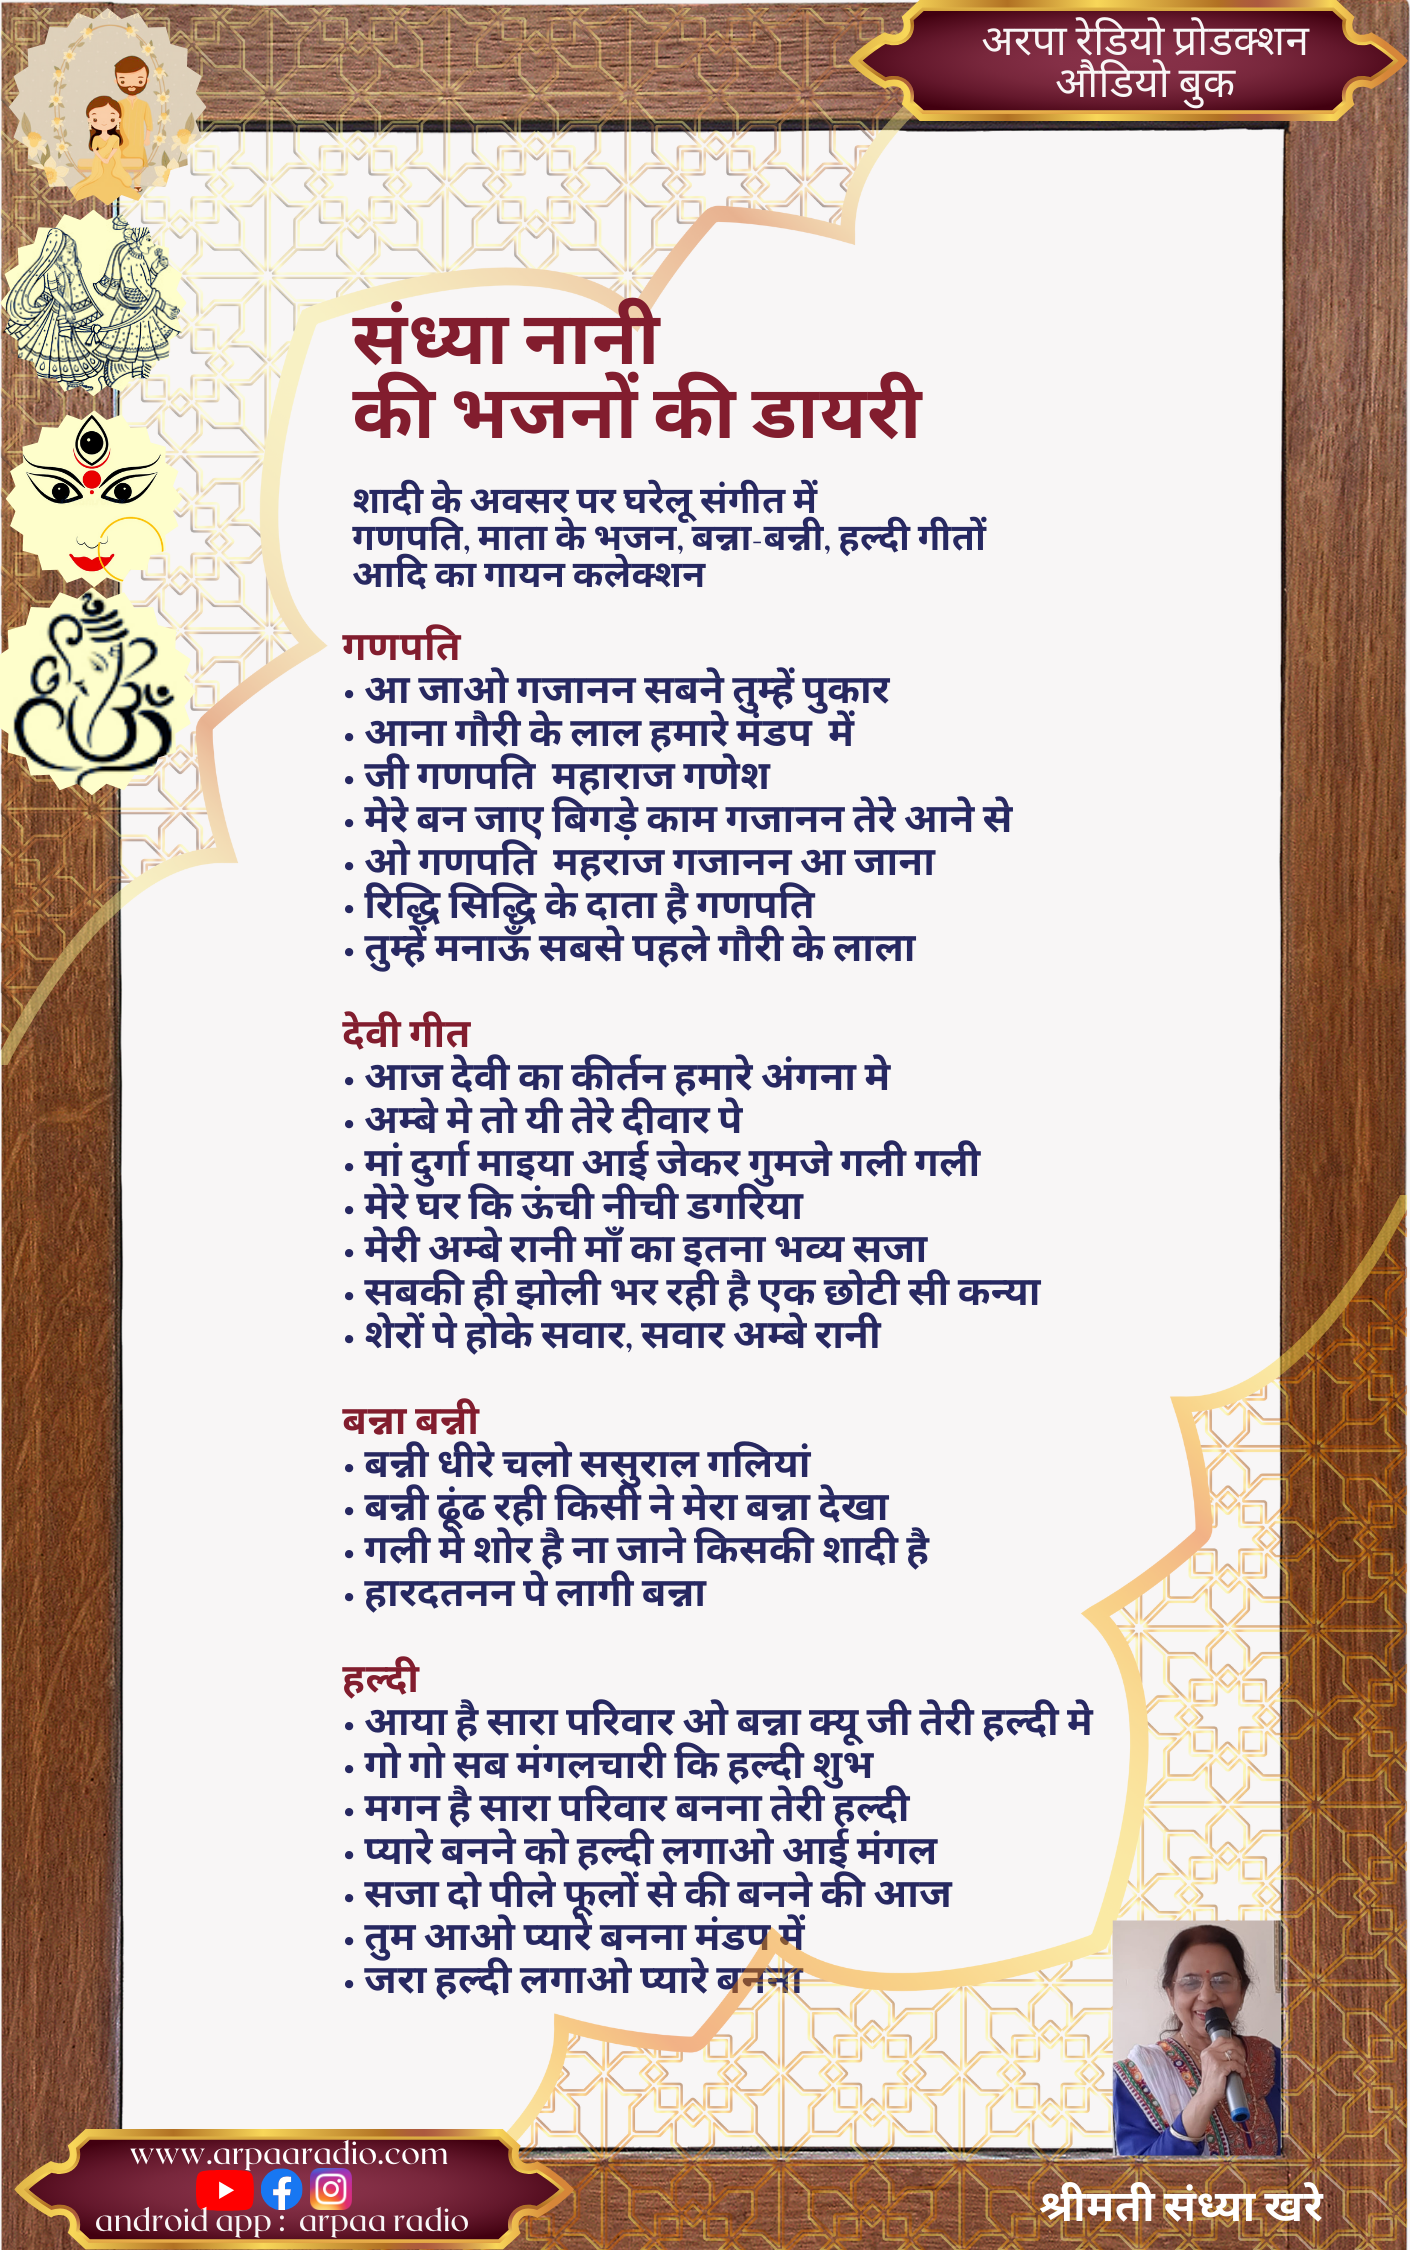 अरपा रेडियो प्रोडक्शन
औडियो बुक
संध्या नानी
की भजनों की डायरी
शादी के अवसर पर घरेलू संगीत में
गणपति, माता के भजन, बन्ना-बन्नी, हल्दी गीतों
आदि का गायन कलेक्शन
गणपति
• आ जाओ गजानन सबने तुम्हें पुकार
• आना गौरी के लाल हमारे मंडप में
• जी गणपति महाराज गणेश
• मेरे बन जाए बिगड़े काम गजानन तेरे आने से
• ओ गणपति महराज गजानन आ जाना
• रिद्धि सिद्धि के दाता है गणपति
• तुम्हें मनाऊँ सबसे पहले गौरी के लाला
देवी गीत
• आज देवी का कीर्तन हमारे अंगना मे
• अम्बे मे तो यी तेरे दीवार पे
• मां दुर्गा माइया आई जेकर गुमजे गली गली
• मेरे घर कि ऊंची नीची डगरिया
• मेरी अम्बे रानी माँ का इतना भव्य सजा
• सबकी ही झोली भर रही है एक छोटी सी कन्या
• शेरों पे होके सवार, सवार अम्बे रानी
बन्ना बन्नी
• बन्नी धीरे चलो ससुराल गलियां
• बन्नी ढूंढ रही किसी ने मेरा बन्ना देखा
• गली मे शोर है ना जाने किसकी शादी है
• हारदतनन पे लागी बन्ना
हल्दी
• आया है सारा परिवार ओ बन्ना क्यू जी तेरी हल्दी मे
• गो गो सब मंगलचारी कि हल्दी शुभ
• मगन है सारा परिवार बनना तेरी हल्दी
• प्यारे बनने को हल्दी लगाओ आई मंगल
• सजा दो पीले फूलों से की बनने की आज
• तुम आओ प्यारे बनना मंडप में
• जरा हल्दी लगाओ प्यारे बनना
www.arpaaradio.com
android app : arpaa radio
श्रीमती संध्या खरे